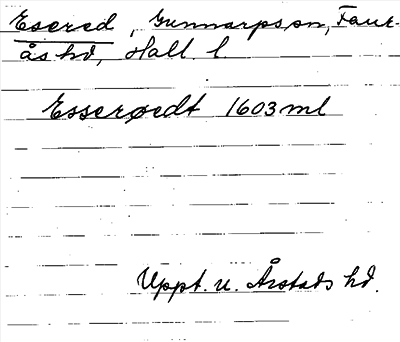 Esered, Gunnarps sn, Faur-
ås hd, Hall. l.
Esserøedt 1603 ml
Uppt. u. Årstads hd.